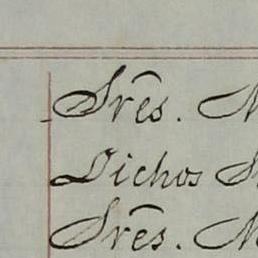 Sres. M
Dichos S
Sres. M